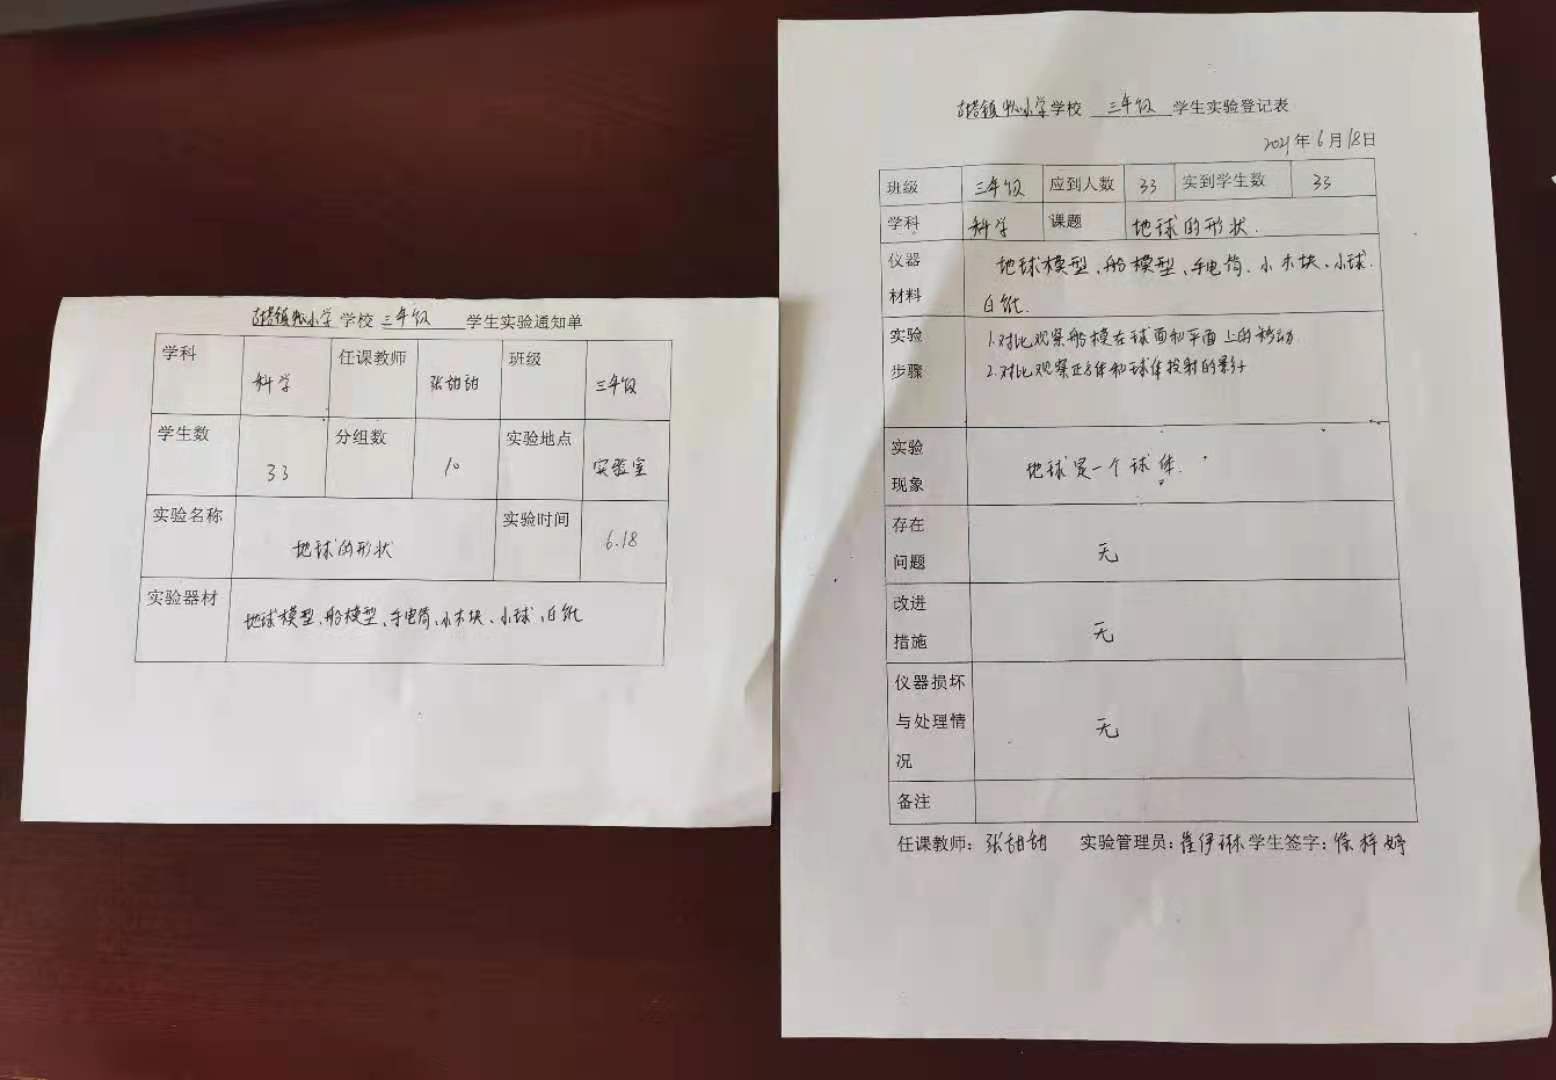 学校 三年级 学生实验通知单
学科 科学 任课教师 张甜甜 班级 三年级
学生数 33 分组数 10 实验地点 实验室
实验名称 地球的形状 实验时间 6.18
实验器材 地球模型、船模型、手电筒、小木块、小球、白纸
学校 三年级 学生实验登记表
2021年6月18日
班级 三年级 应到人数 33 实到学生数 33
学科 科学 课题 地球的形状.
仪器 地球模型、船模型、手电筒、小木块、小球.
材料 白纸.
实验 1.对比观察船模在球面和平面上的移动.
步骤 2.对比观察正方体和球体投射的影子
实验 地球是一个球体.
现象
存在
问题 无
改进
措施 无
仪器损坏
与处理情 无
况
备注
任课教师：张甜甜 实验管理员：崔伊琳 学生签字：徐梓婷